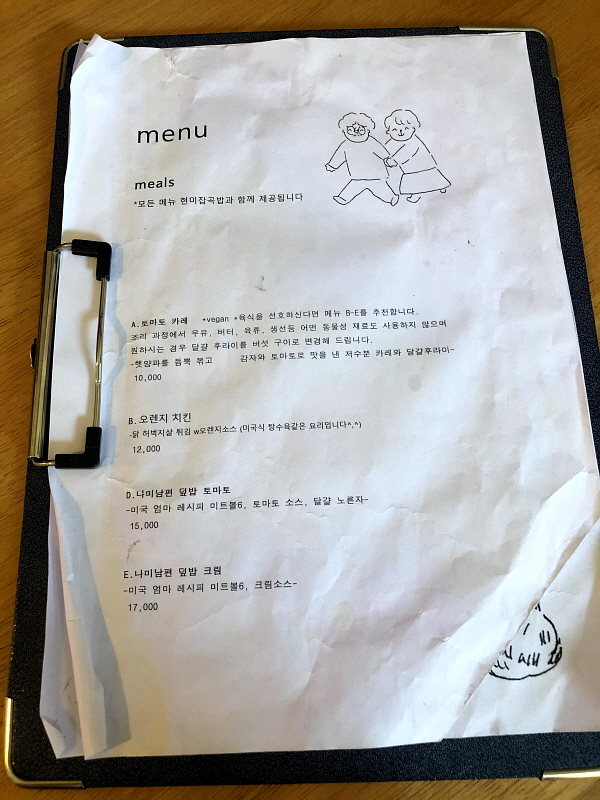 menu
meals
*모든 메뉴 현미잡곡밥과 함께 제공됩니다
A.토마토 카레 *vegan *육식을 선호하신다면 메뉴 B-E를 추천합니다.
조리 과정에서 우유, 버터, 육류, 생선등 어떤 동물성 재료도 사용하지 않으며
원하시는 경우 달걀 후라이를 버섯 구이로 변경해 드립니다.
-햇양파를 듬뿍 볶고 감자와 토마토로 맛을 낸 저수분 카레와 달걀후라이-
10,000
B.오렌지 치킨
-닭 허벅지살 튀김 w오렌지소스 (미국식 탕수육같은 요리입니다^.^)
12,000
D.나미남편 덮밥 토마토
-미국 엄마 레시피 미트볼6, 토마토 소스, 달걀 노른자-
15,000
E.나미남편 덮밥 크림
-미국 엄마 레시피 미트볼6, 크림소스-
17,000